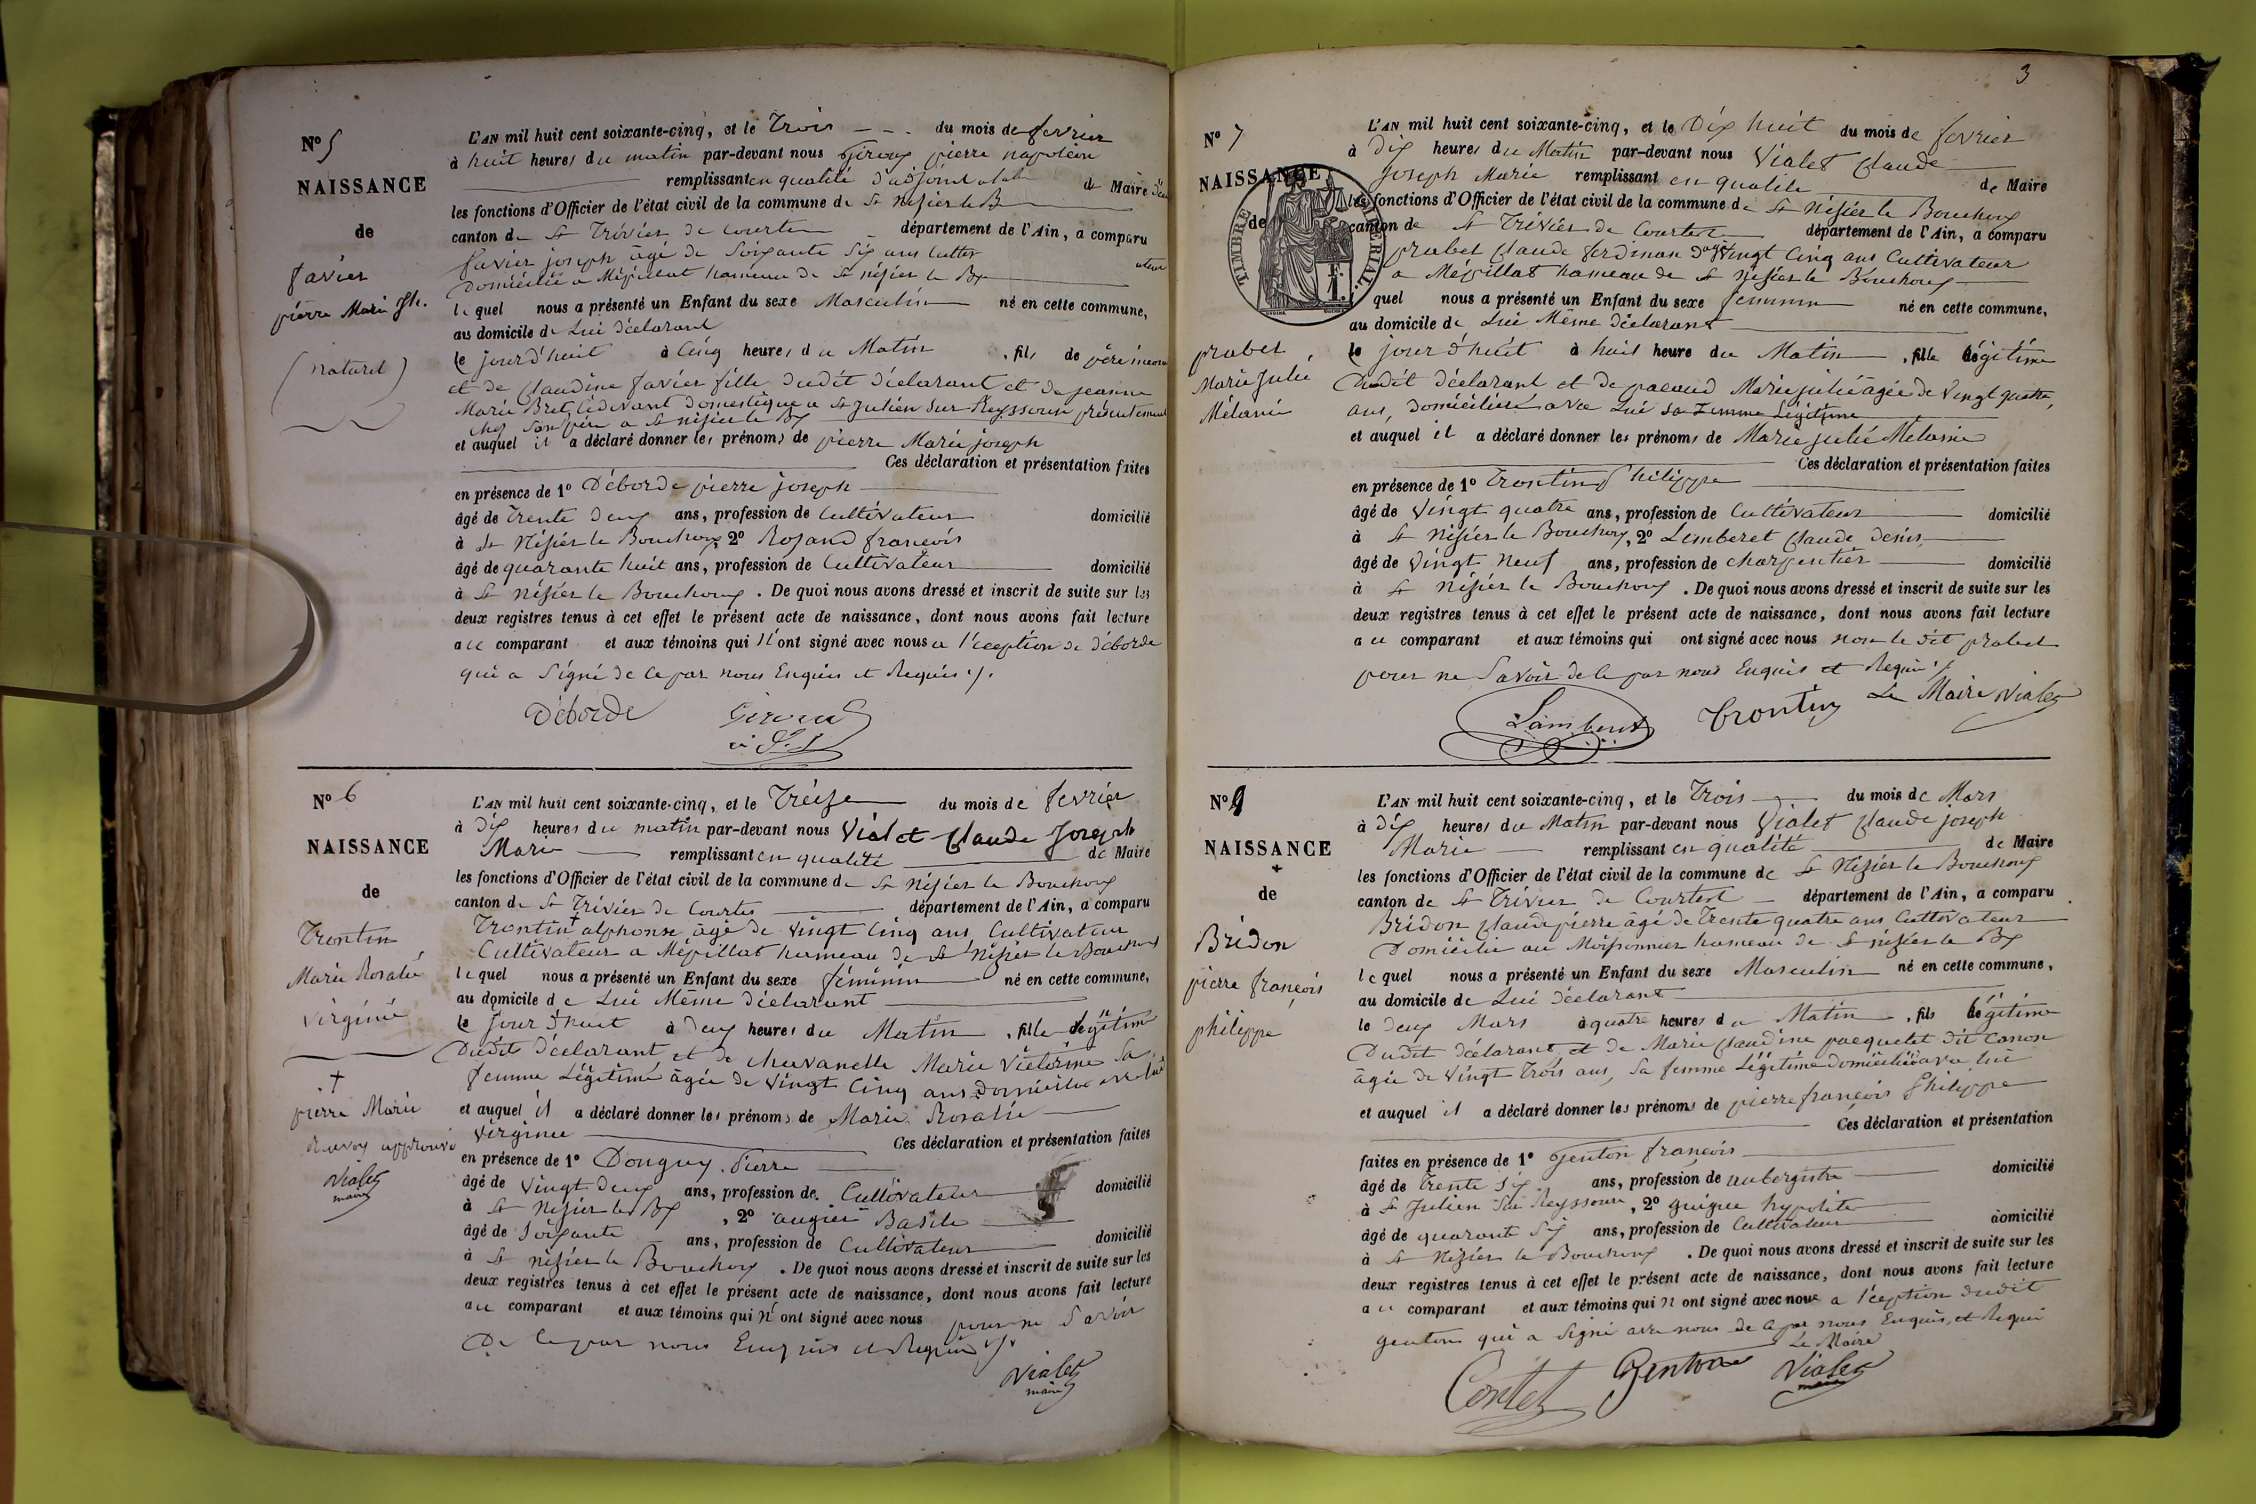 N° 5
NAISSANCE
de
favier
pierre Marie Jh.
(naturel)
L'AN mil huit cent soixante-cinq, et le Trois - - - du mois de fevrier
à huit heures du matin par-devant nous Giroux pierre napoléon
remplissant en qualité d'adjoint de Maire
les fonctions d'Officier de l'état civil de la commune de St Nisier le B
canton de St Trivier de Courtes département de l'Ain, a comparu
favier joseph âgé de Soixante Six ans Cultivateur
Domicilié a Mépillat hameau de St nisier le Bx
le quel nous a présenté un Enfant du sexe Masculin né en cette commune,
au domicile de Lui déclarant
le jour d'huit à Cinq heures du Matin, fils de père inconnu
et de Claudine favier fille dudit déclarant et de jeanne
Marie Bret, Cidevant Domestique a St Julien Sur Reyssouze présentement
chez Son père a St nisier le Bx
et auquel il a déclaré donner les prénoms de pierre Marie joseph
Ces déclaration et présentation faites
en présence de 1° Déborde pierre joseph
âgé de Trente deux ans, profession de Cultivateur domicilié
à St Nisier le Bouchoux, 2° Rosand francois
âgé de quarante huit ans, profession de Cultivateur domicilié
à St Nisier le Bouchoux. De quoi nous avons dressé et inscrit de suite sur les
deux registres tenus à cet effet le présent acte de naissance, dont nous avons fait lecture
au comparant et aux témoins qui N'ont signé avec nous a l'éception de déborde
qui a Signé de Ce par nous Enquis et Requis ./.
Déborde Giroux
N° 6
NAISSANCE
de
Trontin
Marie Rosalie
virginie
+
pierre Marie
Renvoy approuvé
Vialet
maire
L'AN mil huit cent soixante-cinq, et le Treize du mois de fevrier
à dix heures du matin par-devant nous Vialet Claude Joseph
Marie remplissant en qualité de Maire
les fonctions d'Officier de l'état civil de la commune de St Nisier le Bouchoux
canton de St Trivier de Courtes département de l'Ain, a comparu
Trontin + alphonse âgé de Vingt Cinq ans Cultivateur
Cultivateur a Mépillat hameau de St Nisier le Bouchoux
le quel nous a présenté un Enfant du sexe féminin né en cette commune,
au domicile de Lui Même déclarant
le Jour d'huit à deux heures du Matin, fille légitime
Dudit déclarant et de chavanelle Marie Victorine Sa
femme Légitime âgée de Vingt Cinq ans Domiciliée avec lui
et auquel il a déclaré donner les prénoms de Marie Rosalie
Virginie Ces déclaration et présentation faites
en présence de 1° Donguy Pierre
âgé de Vingt deux ans, profession de Cultivateur domicilié
à St Nisier le Bx, 2° augier Basile
âgé de Soixante ans, profession de Cultivateur domicilié
à St nisier le Bouchoux. De quoi nous avons dressé et inscrit de suite sur les
deux registres tenus à cet effet le présent acte de naissance, dont nous avons fait lecture
au comparant et aux témoins qui N'ont signé avec nous pour ne Savoir
De Ce par nous Enquis et Requis ./.
Vialet
maire
3
N° 7
NAISSANCE
de
TIMBRE IMPERIAL
probet
Marie Julie
Mélanie
L'AN mil huit cent soixante-cinq, et le Dix huit du mois de fevrier
à Dix heures du Matin par-devant nous Vialet Claude
Joseph Marie remplissant en qualité de Maire
les fonctions d'Officier de l'état civil de la commune de St Nisier le Bouchoux
canton de St Trivier de Courtes département de l'Ain, a comparu
probet Claude ferdinan d agé Vingt Cinq ans Cultivateur
a Mépillat hameau de St Nisier le Bouchoux
quel nous a présenté un Enfant du sexe feminin né en cette commune,
au domicile de Lui Même déclarant
le jour d'huit à huit heure du Matin, fille légitime
Dudit déclarant et de pacoud Marie julie âgée de Vingt quatre
ans, domiciliée avec Lui sa Femme Légitime
et auquel il a déclaré donner les prénoms de Marie julie Mélanie
Ces déclaration et présentation faites
en présence de 1° Trontin Philippe
âgé de Vingt quatre ans, profession de Cultivateur domicilié
à St Nisier le Bouchoux, 2° Lemberet Claude denis
âgé de Vingt Neuf ans, profession de charpentier domicilié
à St Nisier le Bouchoux. De quoi nous avons dressé et inscrit de suite sur les
deux registres tenus à cet effet le présent acte de naissance, dont nous avons fait lecture
au comparant et aux témoins qui ont signé avec nous non le dit probet
pour ne Savoir de Ce par nous Enquis et Requis ./.
Lamberet Trontin Le Maire Vialet
N° 8
NAISSANCE
+
de
Bridon
pierre françois
philippe
L'AN mil huit cent soixante-cinq, et le Trois du mois de Mars
à dix heures du Matin par-devant nous Vialet Claude joseph
Marie remplissant en qualité de Maire
les fonctions d'Officier de l'état civil de la commune de St Nisier le Bouchoux
canton de St Trivier de Courtes département de l'Ain, a comparu
Bridon Claude pierre âgé de Trente quatre ans Cultivateur
Domicilié au Moissonnier hameau de St nisier le Bx
le quel nous a présenté un Enfant du sexe Masculin né en cette commune,
au domicile de Lui déclarant
le deux Mars à quatre heures du Matin, fils légitime
Dudit déclarant et de Marie Claudine pacquelet dit Canon
âgée de Vingt Trois ans, Sa femme Légitime domiciliée avec lui
et auquel il a déclaré donner les prénoms de pierre françois Philippe
Ces déclaration et présentation
faites en présence de 1° Genton françois
âgé de Trente Six ans, profession de aubergiste domicilié
à St Julien Sur Reyssouze, 2° guigue hypolite
âgé de quarant Six ans, profession de Cultivateur domicilié
à St Nizier le Bouchoux. De quoi nous avons dressé et inscrit de suite sur les
deux registres tenus à cet effet le présent acte de naissance, dont nous avons fait lecture
au comparant et aux témoins qui N ont signé avec nous a l'éception dudit
genton qui a Signé avec nous de Ce par nous Enquis et Requis
Le Maire
Contet Genton Vialet
maire